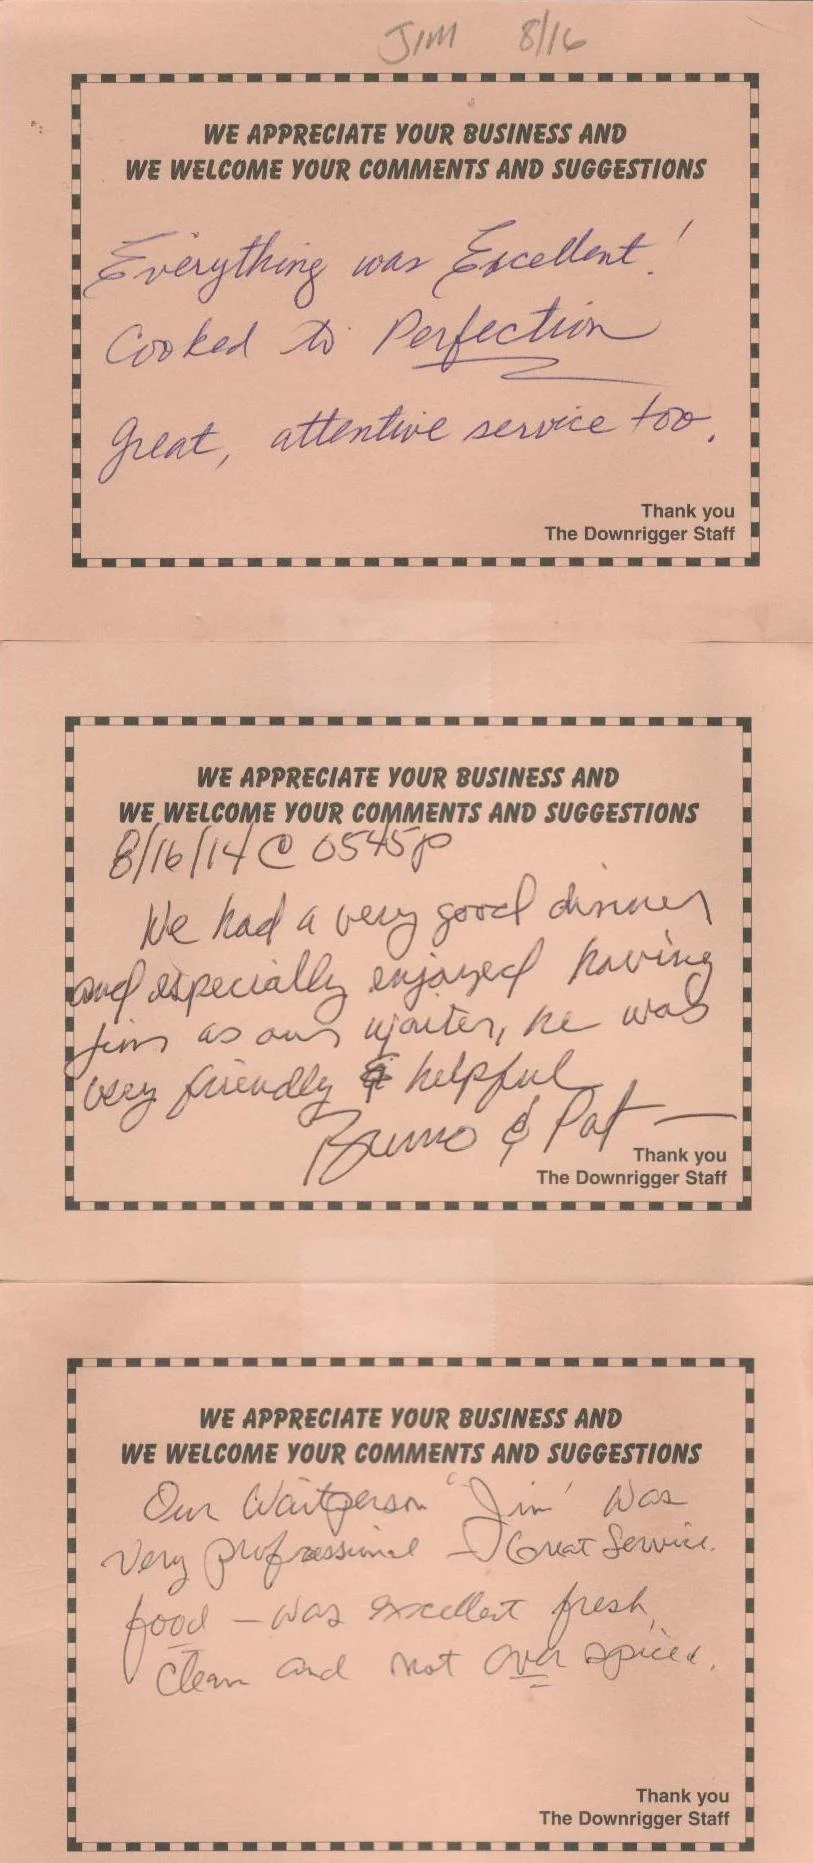 JIM 8/16
WE APPRECIATE YOUR BUSINESS AND
WE WELCOME YOUR COMMENTS AND SUGGESTIONS
Everything was Excellent!
Cooked to Perfection
Great, attentive service too.
Thank you
The Downrigger Staff
WE APPRECIATE YOUR BUSINESS AND
WE WELCOME YOUR COMMENTS AND SUGGESTIONS
8/16/14 @ 0545p
We had a very good dinner
and especially enjoyed having
Jim as our waiter, he was
very friendly & helpful
Bruno & Pat —
Thank you
The Downrigger Staff
WE APPRECIATE YOUR BUSINESS AND
WE WELCOME YOUR COMMENTS AND SUGGESTIONS
Our Waitperson "Jim" was
very professional – Great Service.
food – was excellent fresh,
Clean and not over spiced.
Thank you
The Downrigger Staff